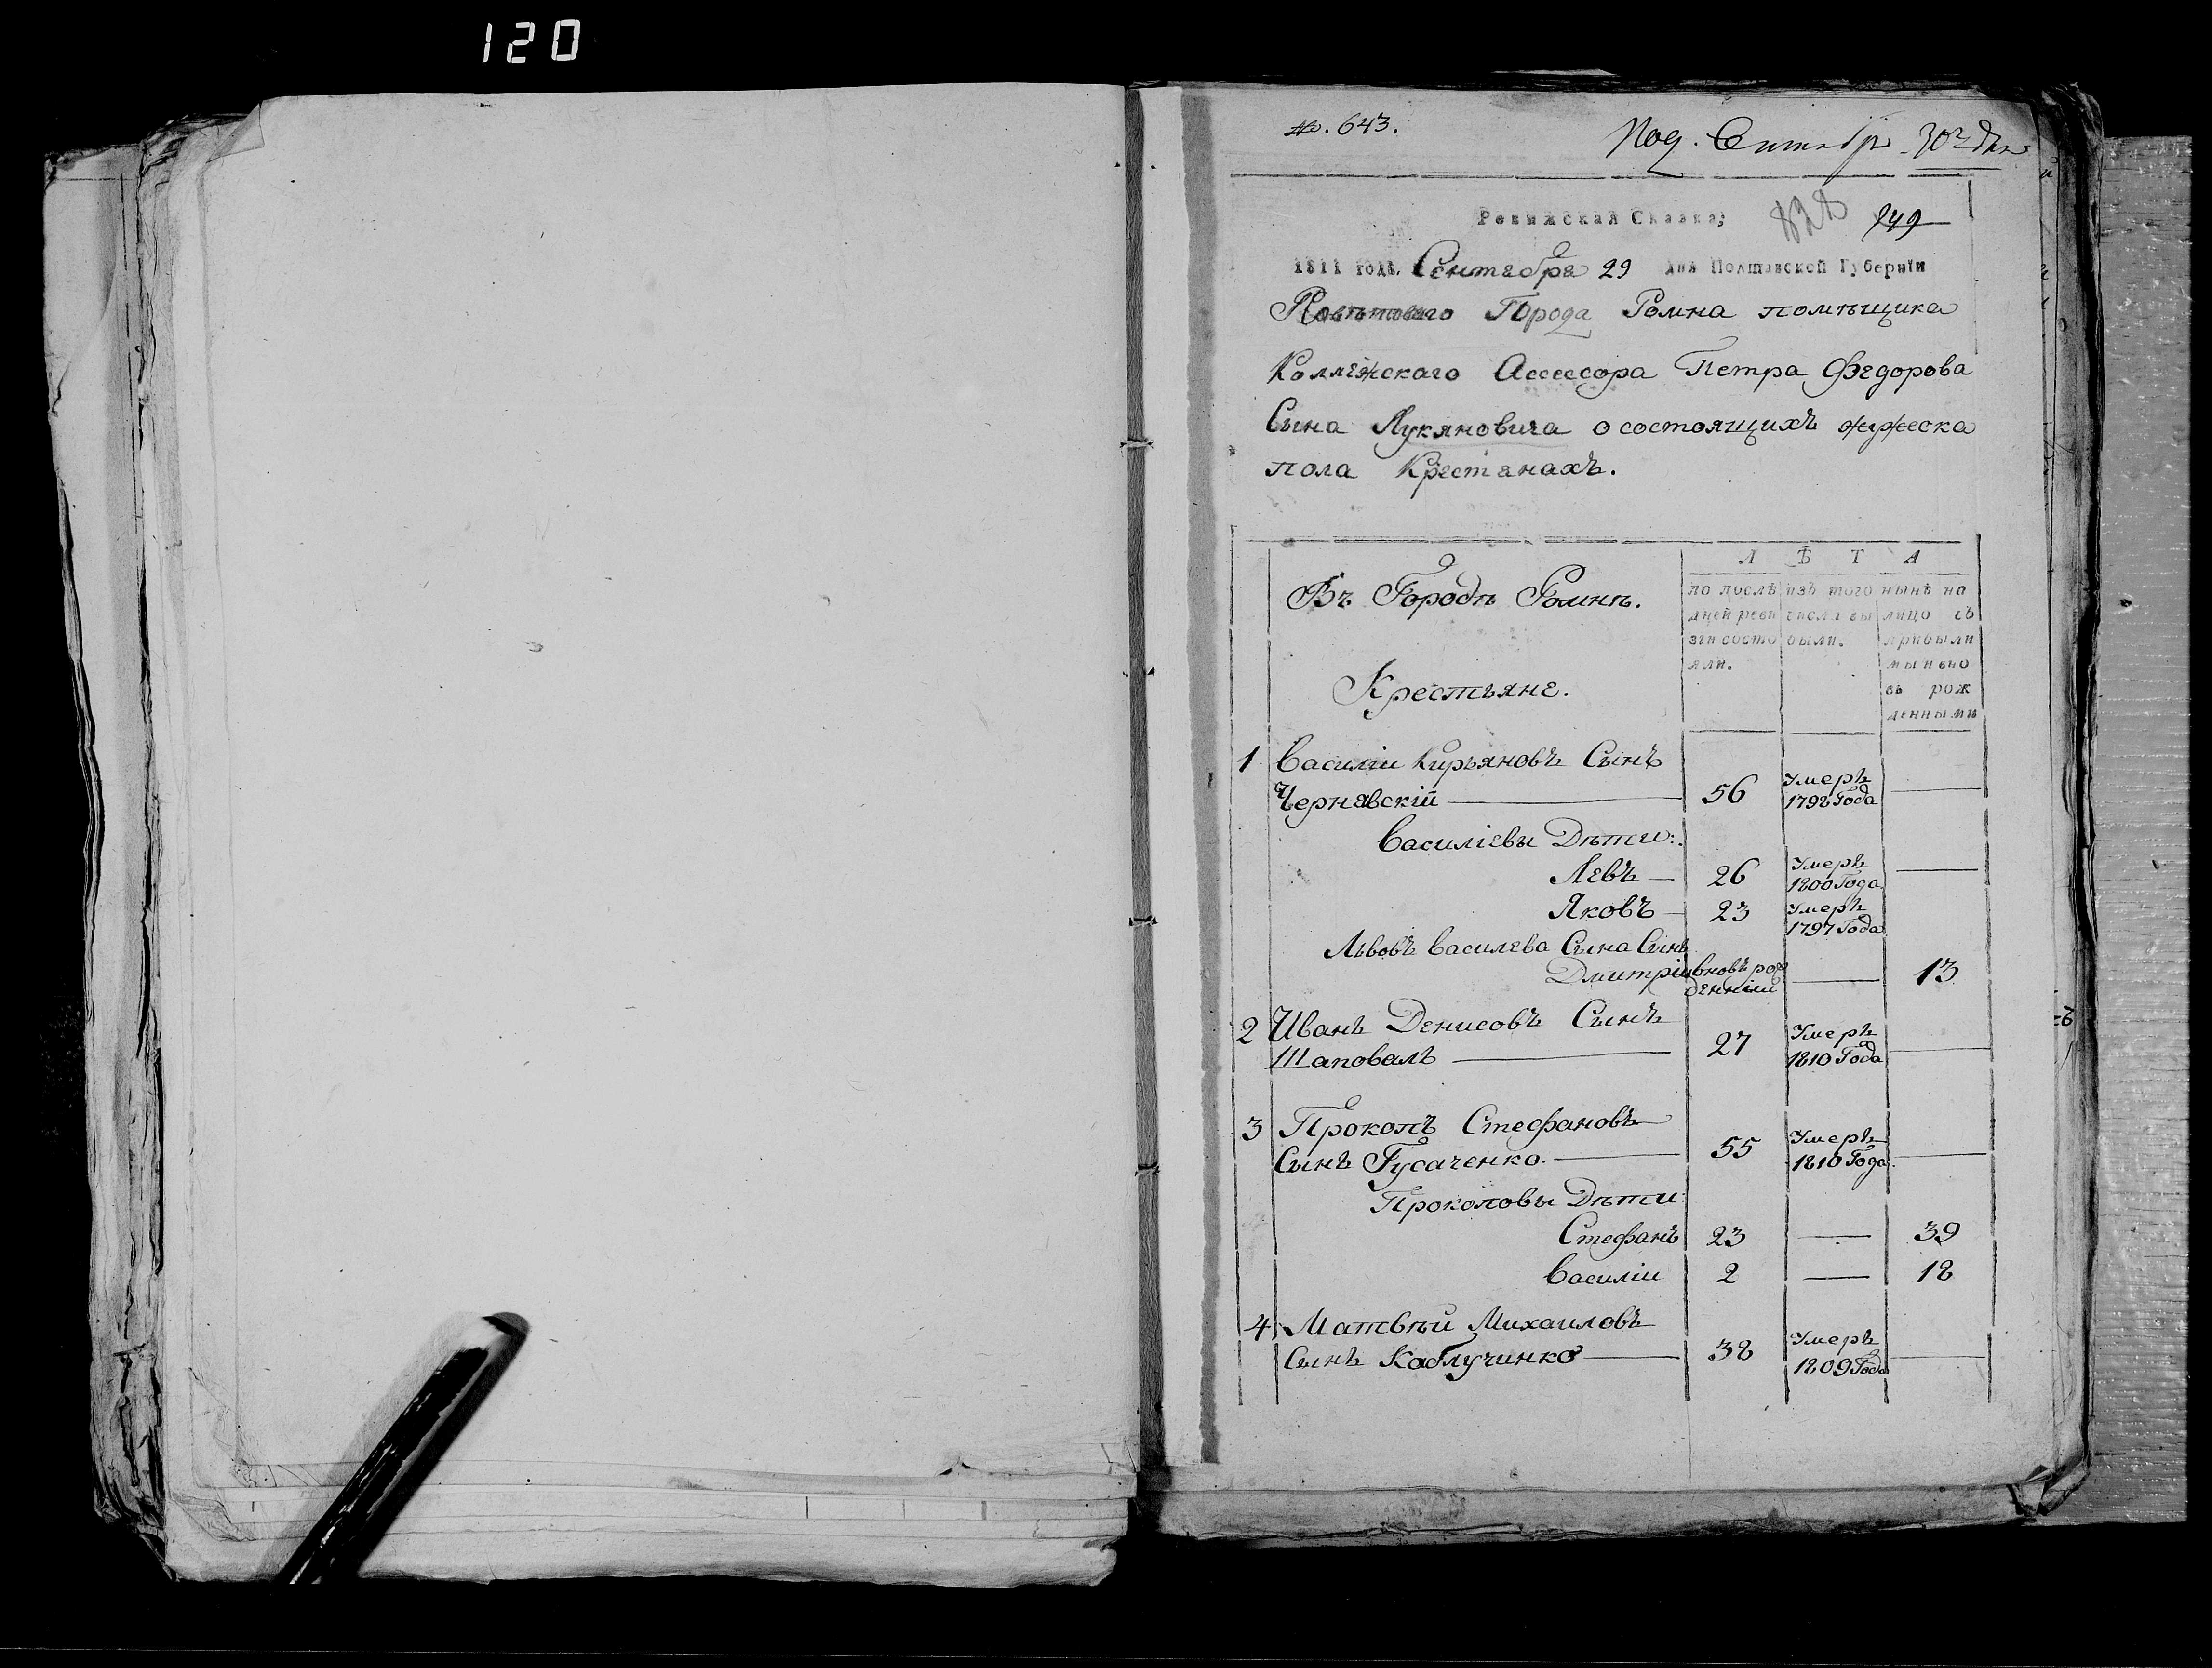 120
№. 643.
Под. Сентябр 30го дня
Ревижская Сказка;
828 249
1811 года. Сентября 29 дня Полтавской Губерніи
Повѣтоваго Города Ромна помѣщика
Коллежскаго Асессора Петра Федорова
Сына Лукяновича о состоящихъ мужеска
пола Крестянахъ.
Въ Городѣ Ромнѣ.
Крестьяне.
Л Ѣ Т А
по послѣ изъ того нынѣ на
дней реви числа вы лицо съ
зіи состо были. прибыли
яли. мы и вно
вь рож
денными
1 Василіи Кирьяновъ Сынъ
Чернявскій — 56 Умеръ 1798 Года —
Василіевы Дѣти:
Левъ — 26 Умеръ 1800 Года —
Яковъ — 23 Умеръ 1797 Года
Львовъ Василева Сына Сынъ
Дмитріи вновь рож денніи — 13
2 Иванъ Денисовъ Сынъ
Шаповалъ — 27 Умеръ 1810 Года —
3 Прокопъ Стефановъ
Сынъ Гусаченко. — 55 Умеръ 1810 Года. —
Прокоповы Дѣти:
Стефанъ 23 — 39
Василіи 2 — 18
4 Матвѣи Михаиловъ
Сынъ Каблучинко — 38 Умеръ 1809 Года —